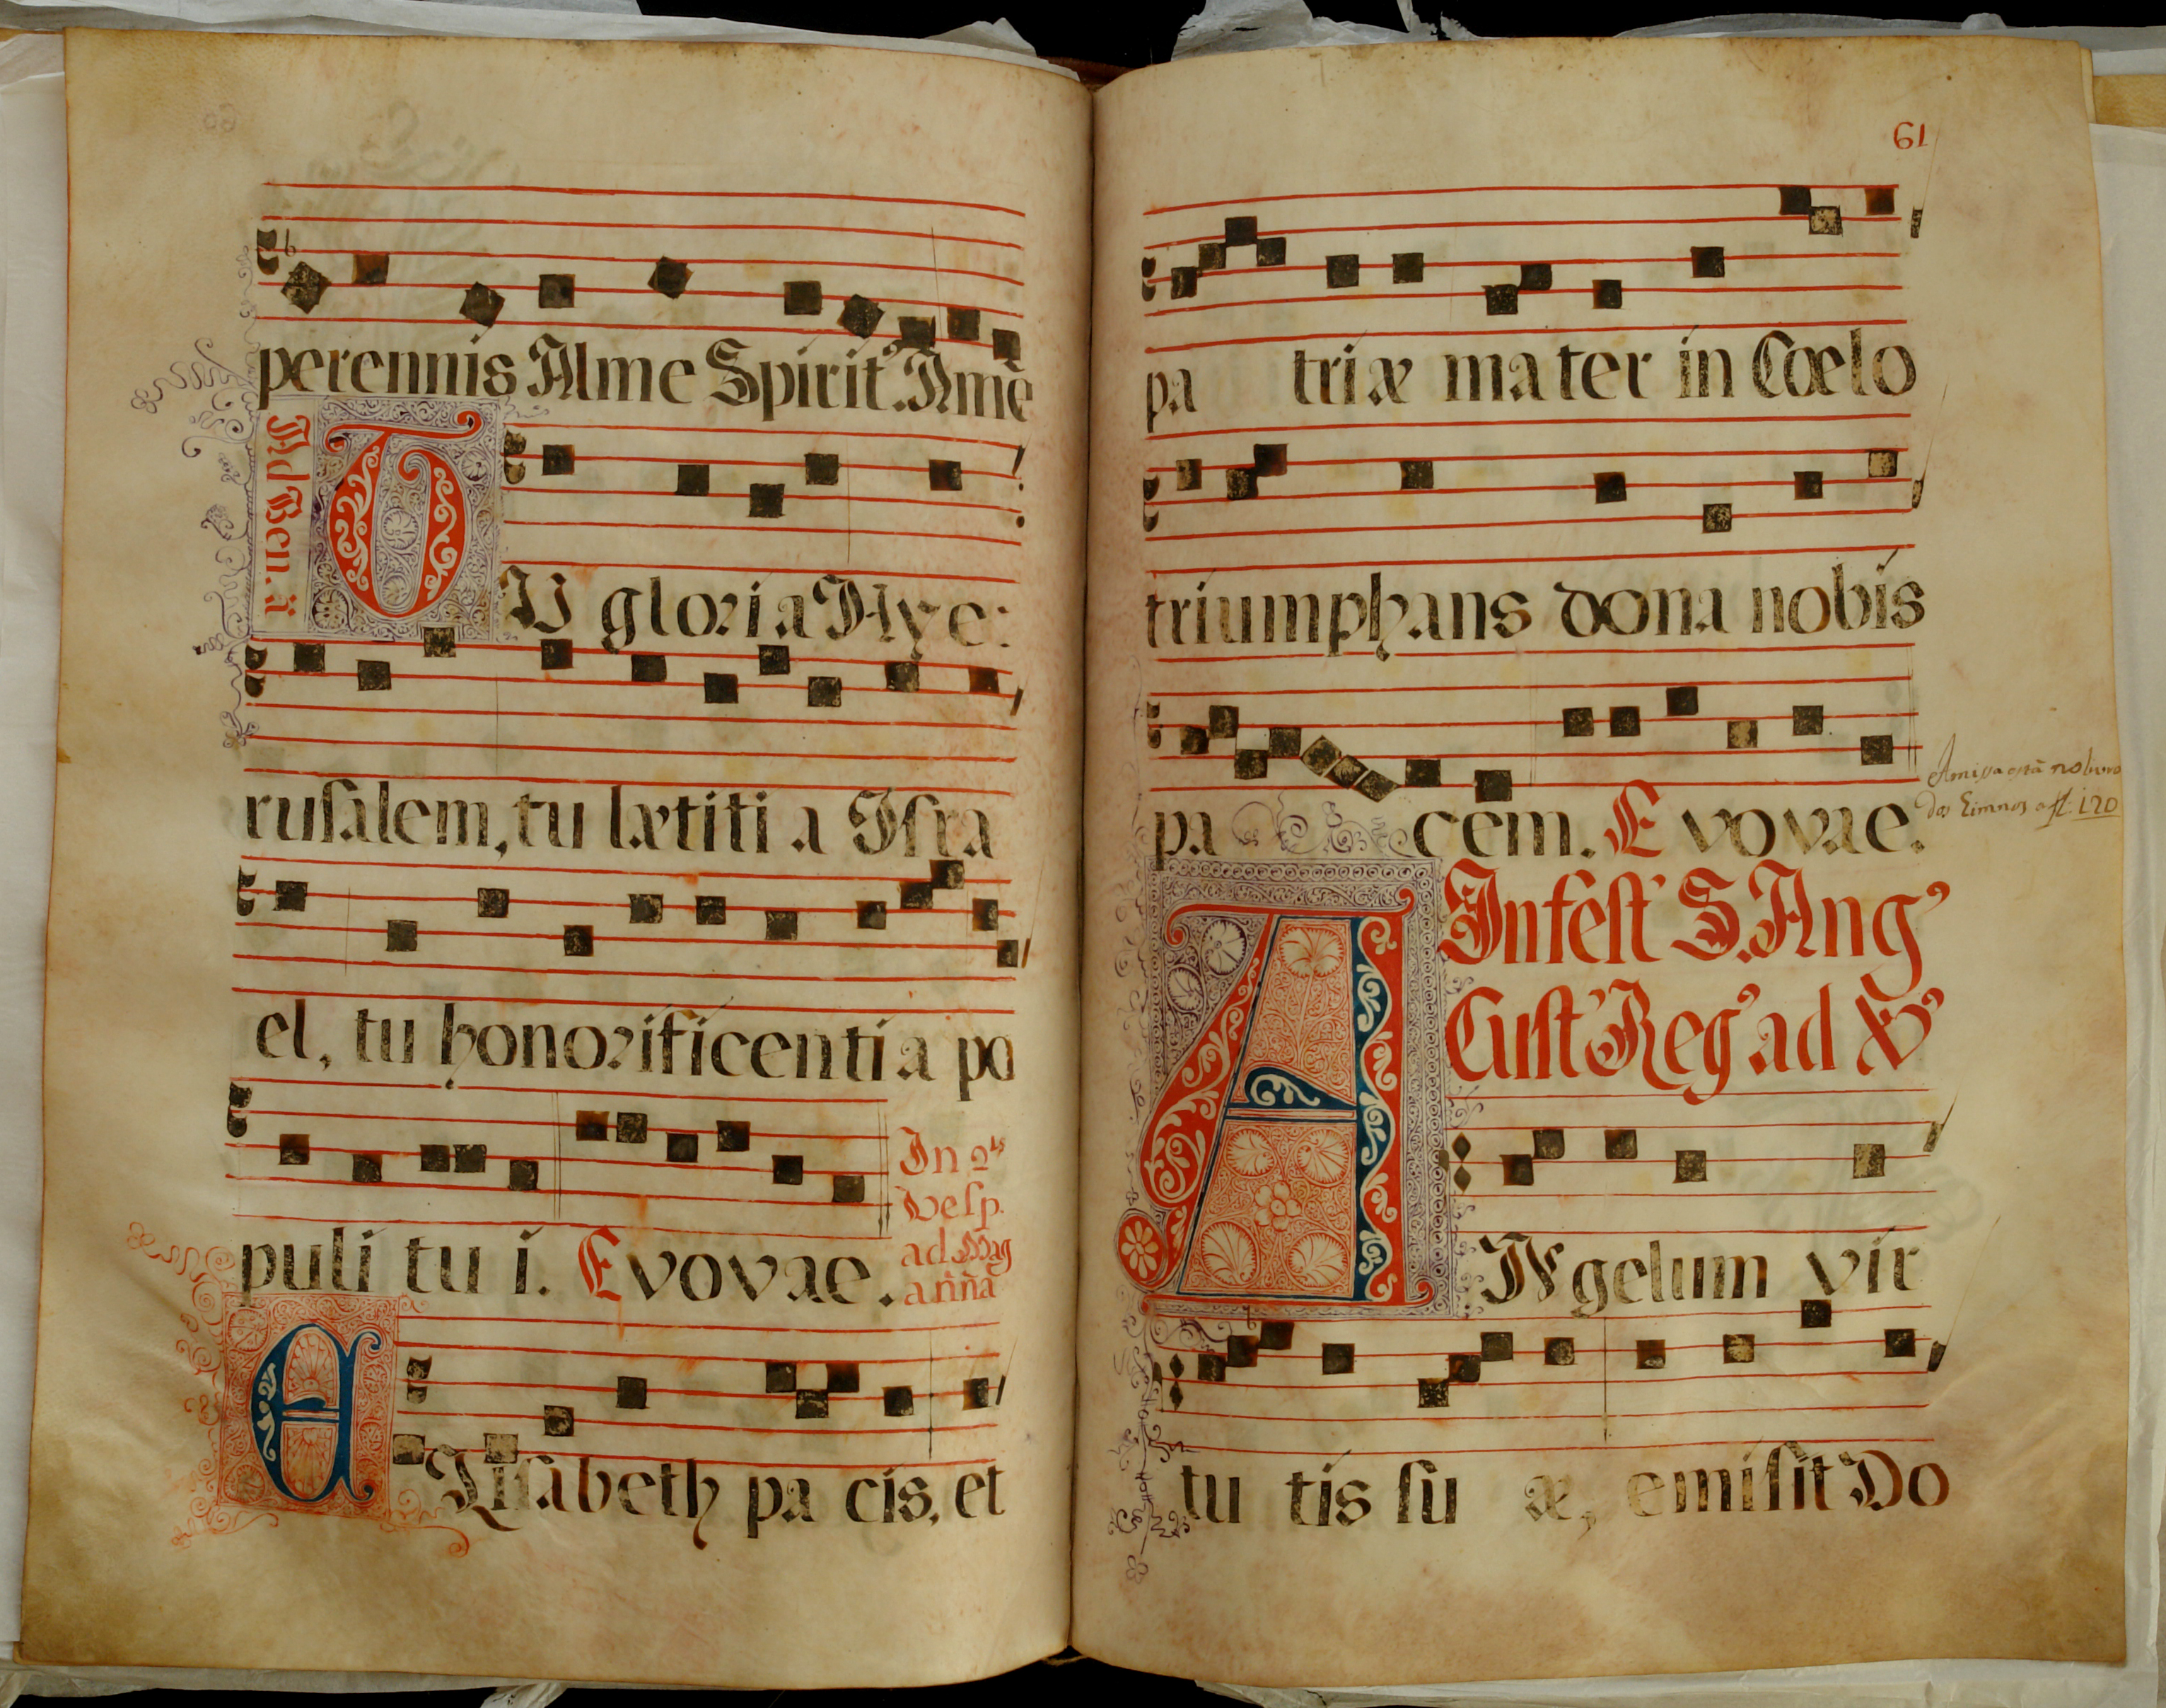 perennis Alme Spirit⁹. Amẽ
Ad Ben. ã
TU gloria Hye:
rusalem, tu lætiti a Isra
el, tu honorificenti a po
puli tu i. Evovae.
In 2.ˢ
Vesp.
ad Mag
anña
ELisabeth pa cis, et
61
pa triæ mater in Cœlo
triumphans dona nobis
pa cem. Evovae.
A missa está no livro
dos Himnos a fl. 120
In fest' S. Ang⁹
Cust' Reg⁹ ad V⁹
ANgelum vir
tu tis su æ, emisit Do